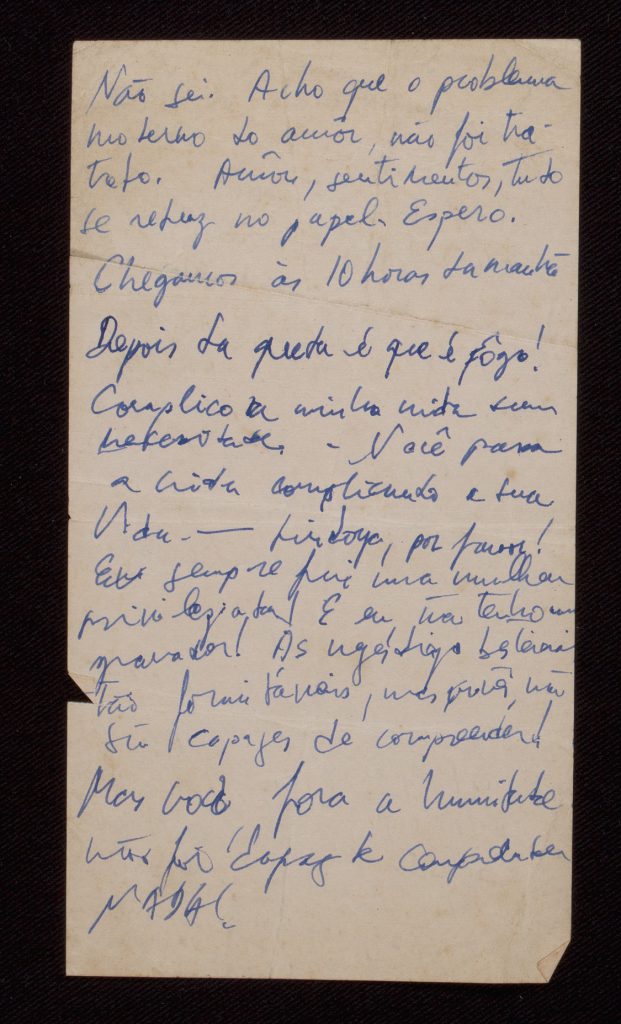 Não sei. Acho que o problema
moderno do amôr, não foi tra-
tado. Amôr, sentimentos, tudo
se reduz no papel. Espero.
Chegamos às 10 horas da manhã
Depois da queda é que é fôgo!
Complico a minha vida sem
necessidade. - Você passa
a vida complicando a sua
vida. — Lindoya, por favor!
Eu sempre fui uma mulher
privilegiada! E eu não tenho um
gravador! As
são formidáveis, mas não
são capazes de compreender!
Mas você fora a humildade
não foi capaz de compreender
NADA!